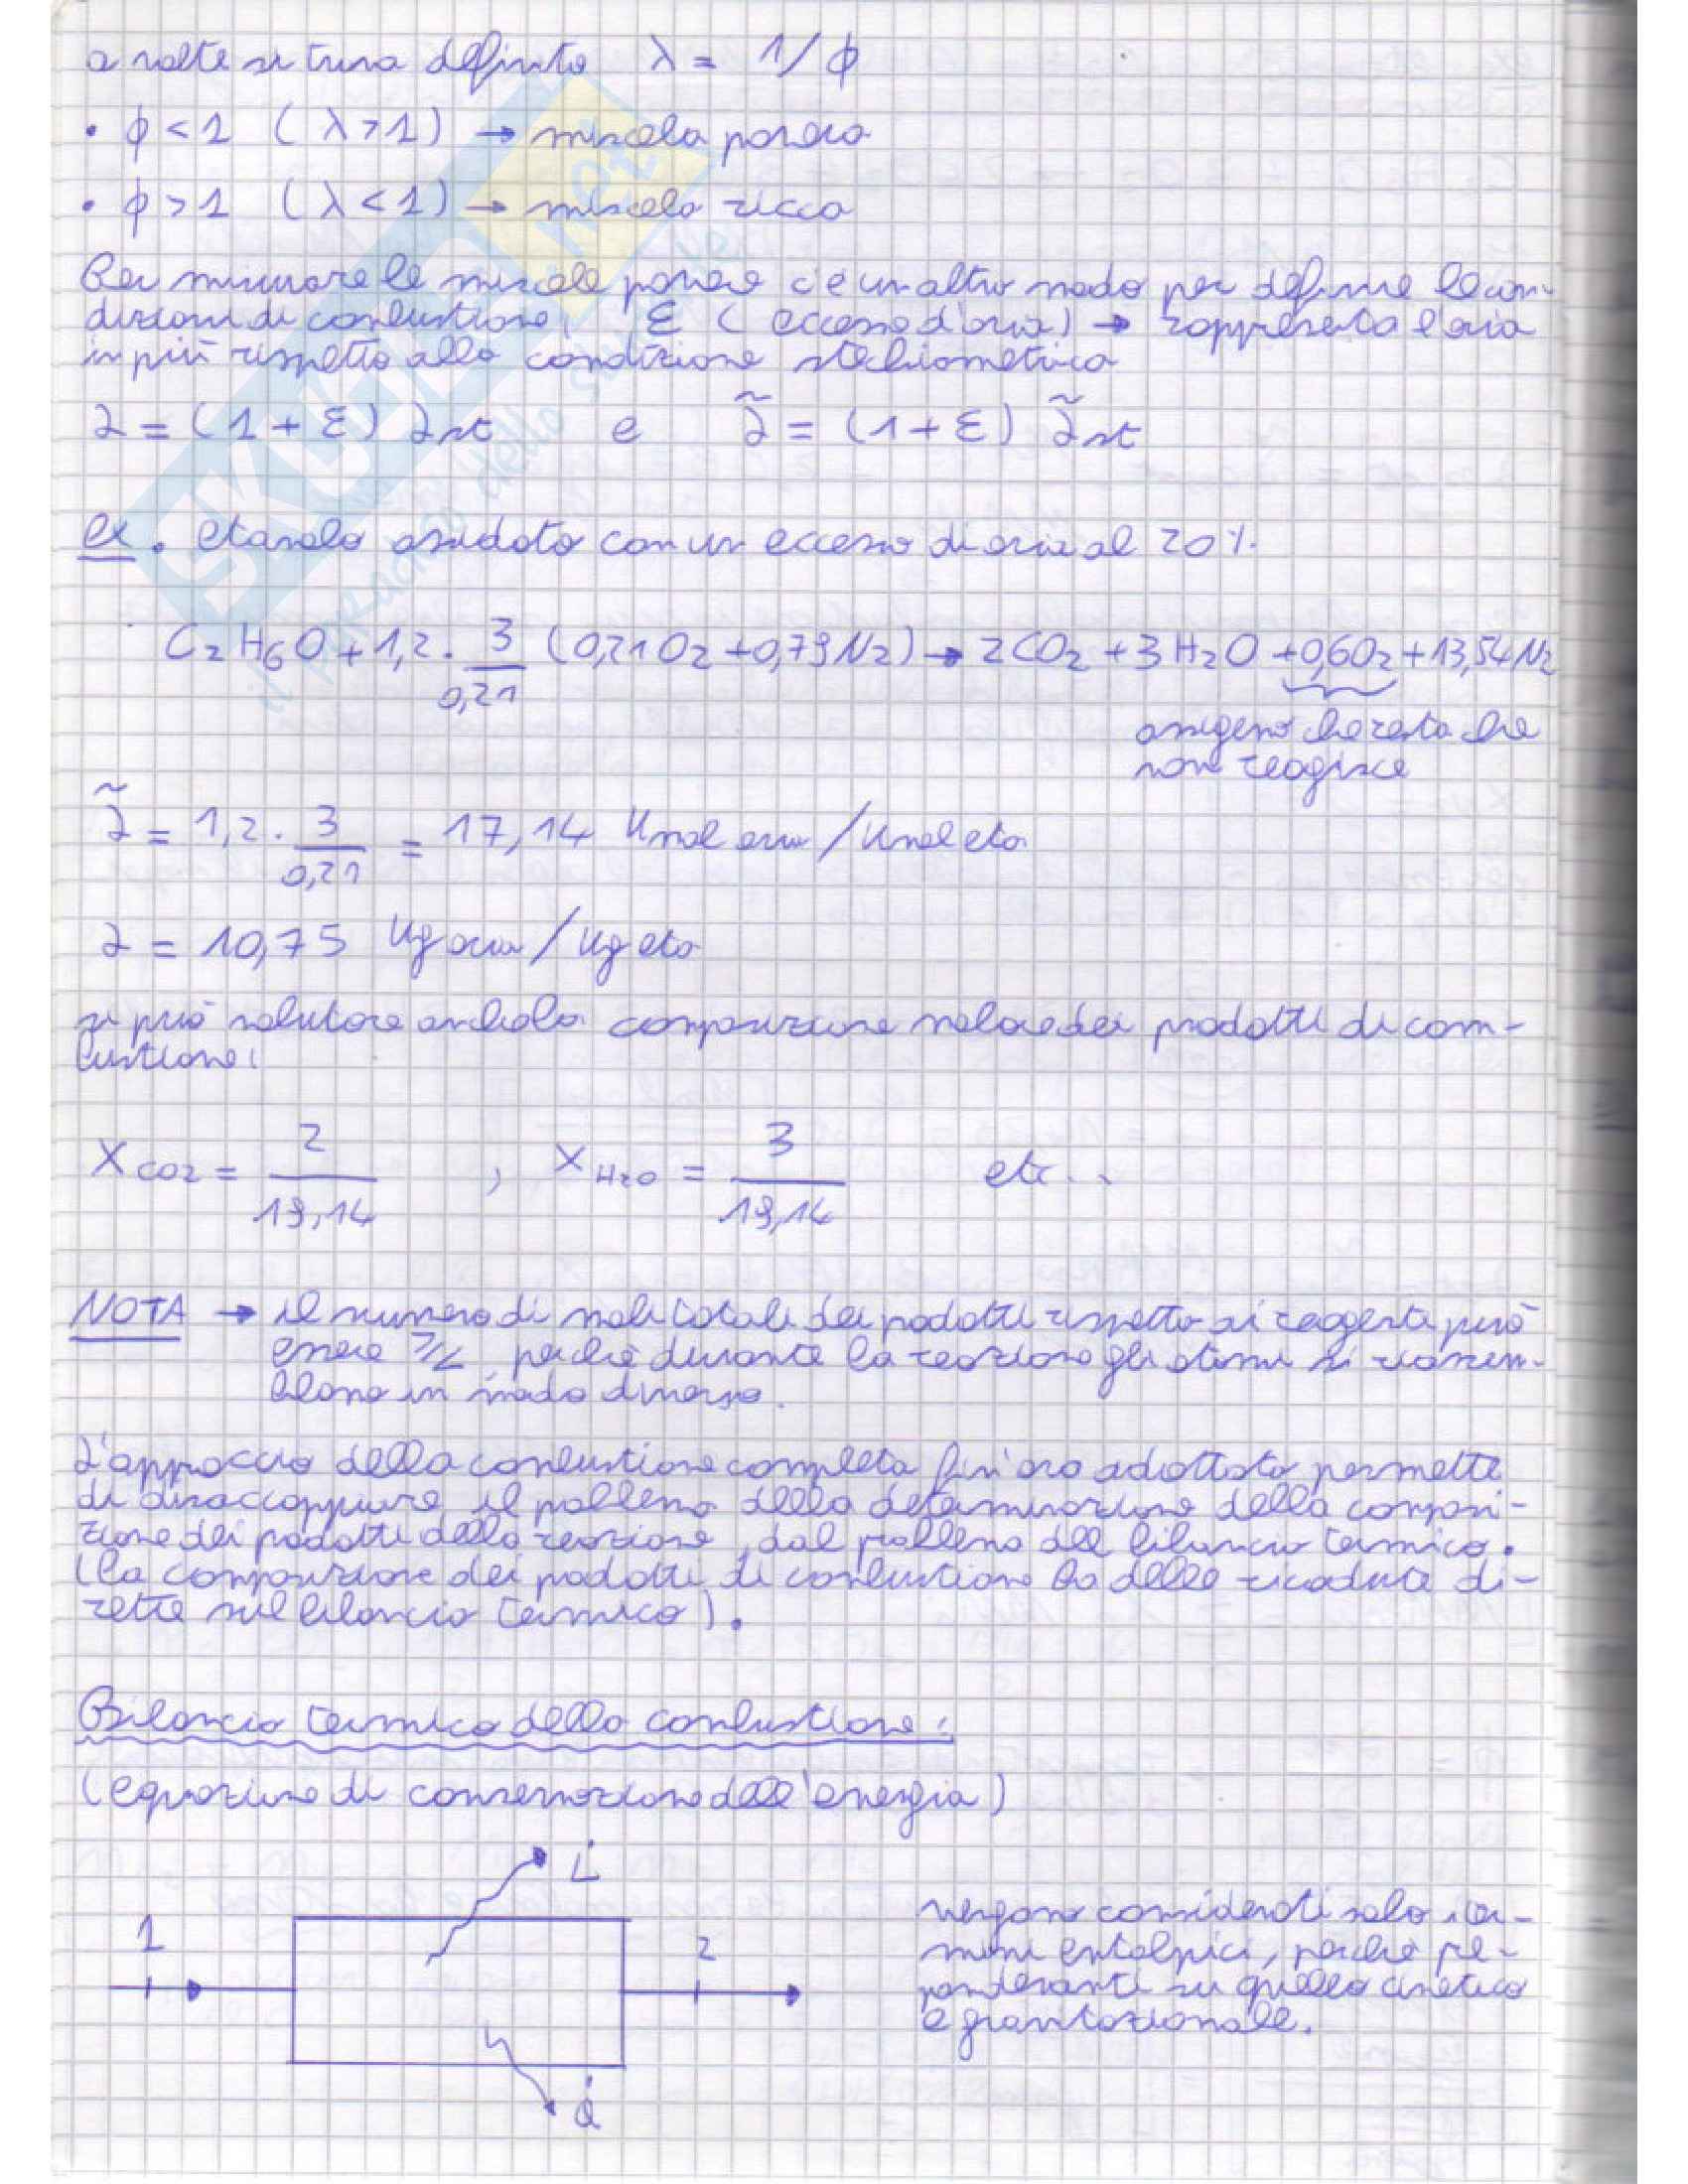 a volte si trova definito λ = 1/ϕ
• ϕ < 1 (λ > 1) → miscela povera
• ϕ > 1 (λ < 1) → miscela ricca
Per misurare le miscele povere c'è un altro modo per definire le con-
dizioni di combustione, ε (eccesso d'aria) → rappresenta l'aria
in più rispetto alla condizione stechiometrica
α = (1 + ε) αst e α̃ = (1 + ε) α̃st
ex. etanolo ossidato con un eccesso di aria al 20%.
C2H6O + 1,2 · 3/0,21 (0,21O2 + 0,79N2) → 2CO2 + 3H2O + 0,6O2 + 13,54N2
ossigeno che resta che
non reagisce
α̃ = 1,2 · 3/0,21 = 17,14 Kmol aria / Kmol eta
α = 10,75 Kg aria / Kg eta
si può valutare anche la composizione molare dei prodotti di com-
bustione:
XCO2 = 2/19,14 , XH2O = 3/19,14 etc..
NOTA → il numero di moli totali dei prodotti rispetto ai reagenti può
essere >/< perchè durante la reazione gli atomi si riassem-
blano in modo diverso.
L'approccio della combustione completa fin'ora adottato permette
di disaccoppiare il problema della determinazione della composi-
zione dei prodotti della reazione, dal problema del bilancio termico.
(la composizione dei prodotti di combustione ha delle ricadute di-
rette sul bilancio termico).
Bilancio termico della combustione:
(equazione di conservazione dell'energia)
L̇
1
2
Q̇
vengono considerati solo i ter-
mini entalpici, perchè pre-
ponderanti su quello cinetico
e gravitazionale.
SKUOLA.net
il paradiso dello studente